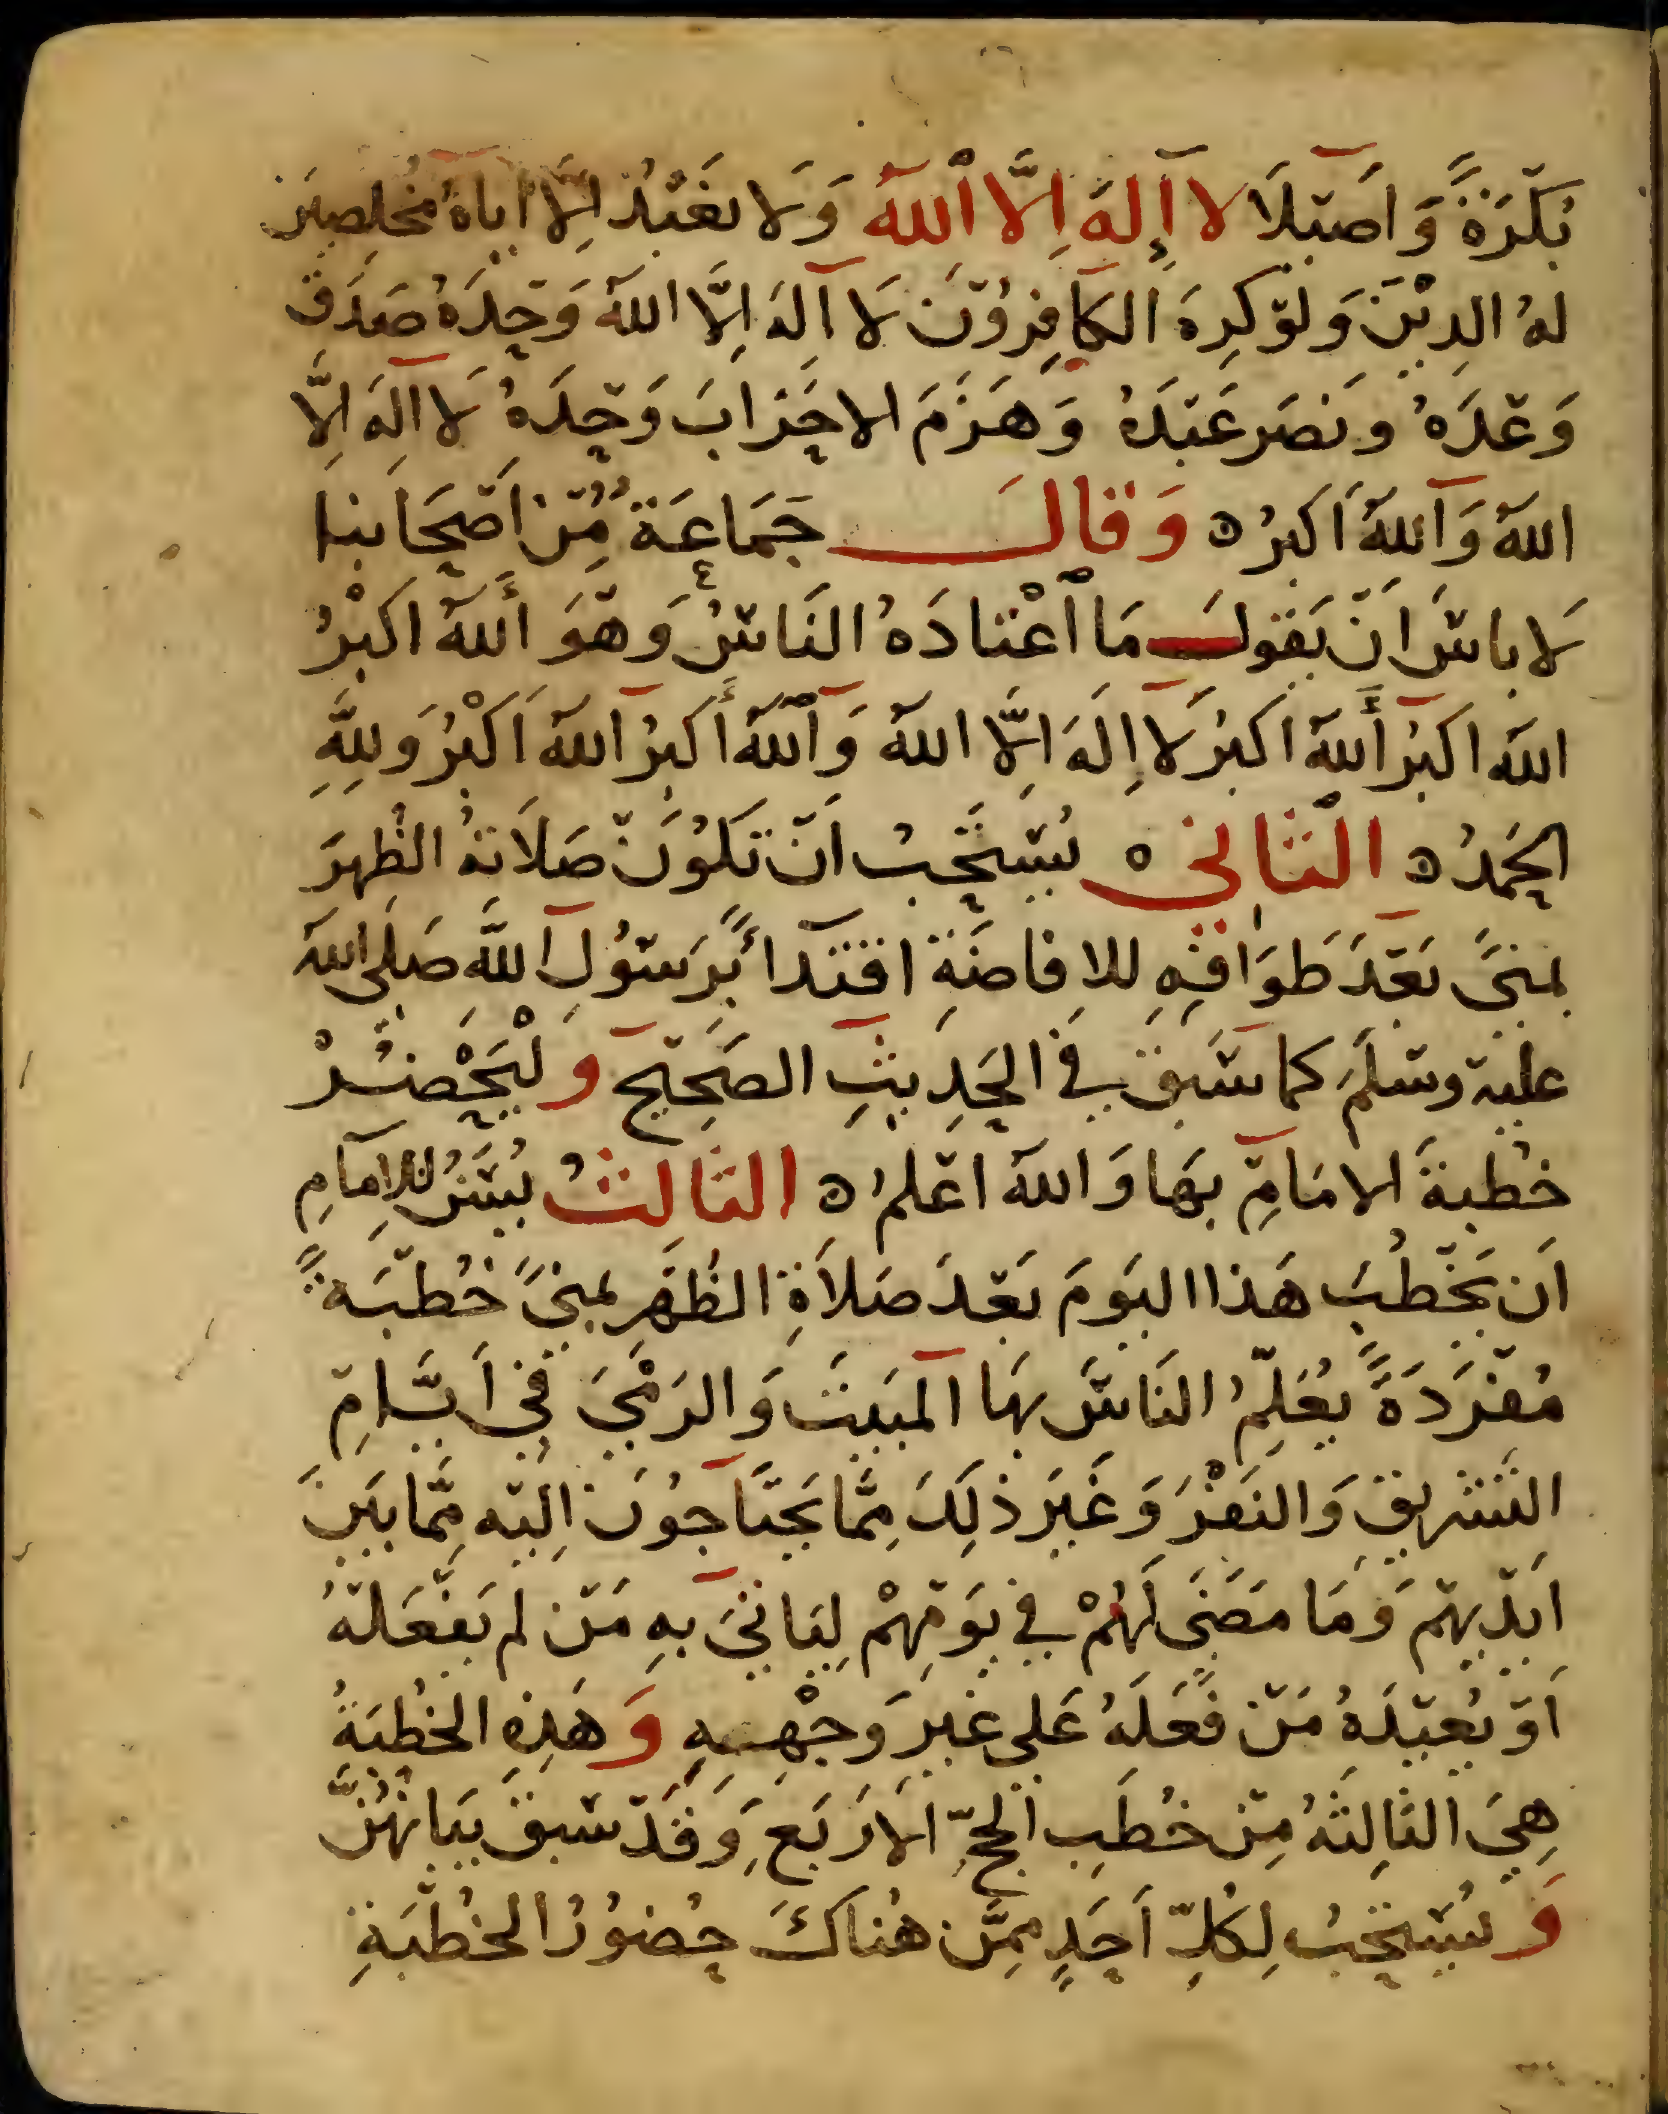 بُكْرَةً وَأَصْيلَا لا إِلَهَ اِلَّا ٱللهُ وَلا نَعْبُدُ اِلَّا اياهُ مُخْلِصِينَ
لهُ الدِيْنَ وَلَوْ كَرِهَ الكَافِرُوْنَ لَا اِلَهَ اِلَّا اللهُ وَحْدَهُ صَدَقَ
وَعْدَهُ وَنَصَرَ عَبْدَهُ وَهَزَمَ الاحْزَابَ وَحْدَهُ لَا اِلَهَ اِلَّا
اللهُ وَاللهُ اَكبرُ ه وَقَالَ جَمَاعَةٌ مِنْ اَصْحَابنا
لَا باسَ اَنْ يَقولَ مَا ٱعْتَادَهُ النَاسُ وَهْوَ أَللهُ اكبْرُ
اللهُ اكبرُ أَللهُ اكبرُ لَا اِلَهَ اِلَّا اللهُ وَٱللهُ أَكبرُ اللهُ اَكْبرُ وَلِلَّهِ
الحَمدُ ه الثَّانِي ه يُسْتَحَبُ اَنْ تَكُوْنَ صَلَاتهُ الظُهرَ
بمنىً بَعْدَ طَوَافِهِ للافاضَةِ اقتدَاً بِرَسُوْلِ اللَّه صَلى اللهُ
عليْهِ وسَلَمَ كما سَبَقَ في الحَدِيثِ الصَحِيْحِ وَلْيَحْضُرْ
خُطْبةَ الامَامِ بهَا وَاللهُ اعْلمُ ه الثَالثُ يُسَنُ للاِمَامِ
اَن يَخْطُبَ هَذا اليَومَ بَعْدَ صَلَاةِ الظُهَرِ بمنىً خُطْبَةً
مُفْرَدَةً يُعَلِّمُ النَاسَ بهَا المَبيتَ وَالرَمْيَ فِي اَيَّامِ
التشْرِيقِ وَالنَفْرَ وَغَيرَ ذلِكَ مِمَّا يَحْتَاجُونَ اِليْهِ مِمَّا بَيْنَ
اَيْدْيهِمْ وَمَا مَضَى لَهُمْ في يَوْمِهِمْ لِيَاتيَ بهِ مَنْ لم يَفْعَلْهُ
اَوْ يُعيْدَهُ مَنْ فَعَلَهُ عَلى غيرِ وَجْهِهِ وَهَذِهِ الخُطْبَةُ
هِيَ الثالِثةُ مِنْ خُطَبِ الحجِّ الاَرْبَعِ وَقَدْ سَبَقَ بَيَانهُنَّ
وَيُسْتَحَبُ لِكُلِّ اَحَدٍ مِمَّن هُنَاكَ حُضورُ الخُطْبَةِ